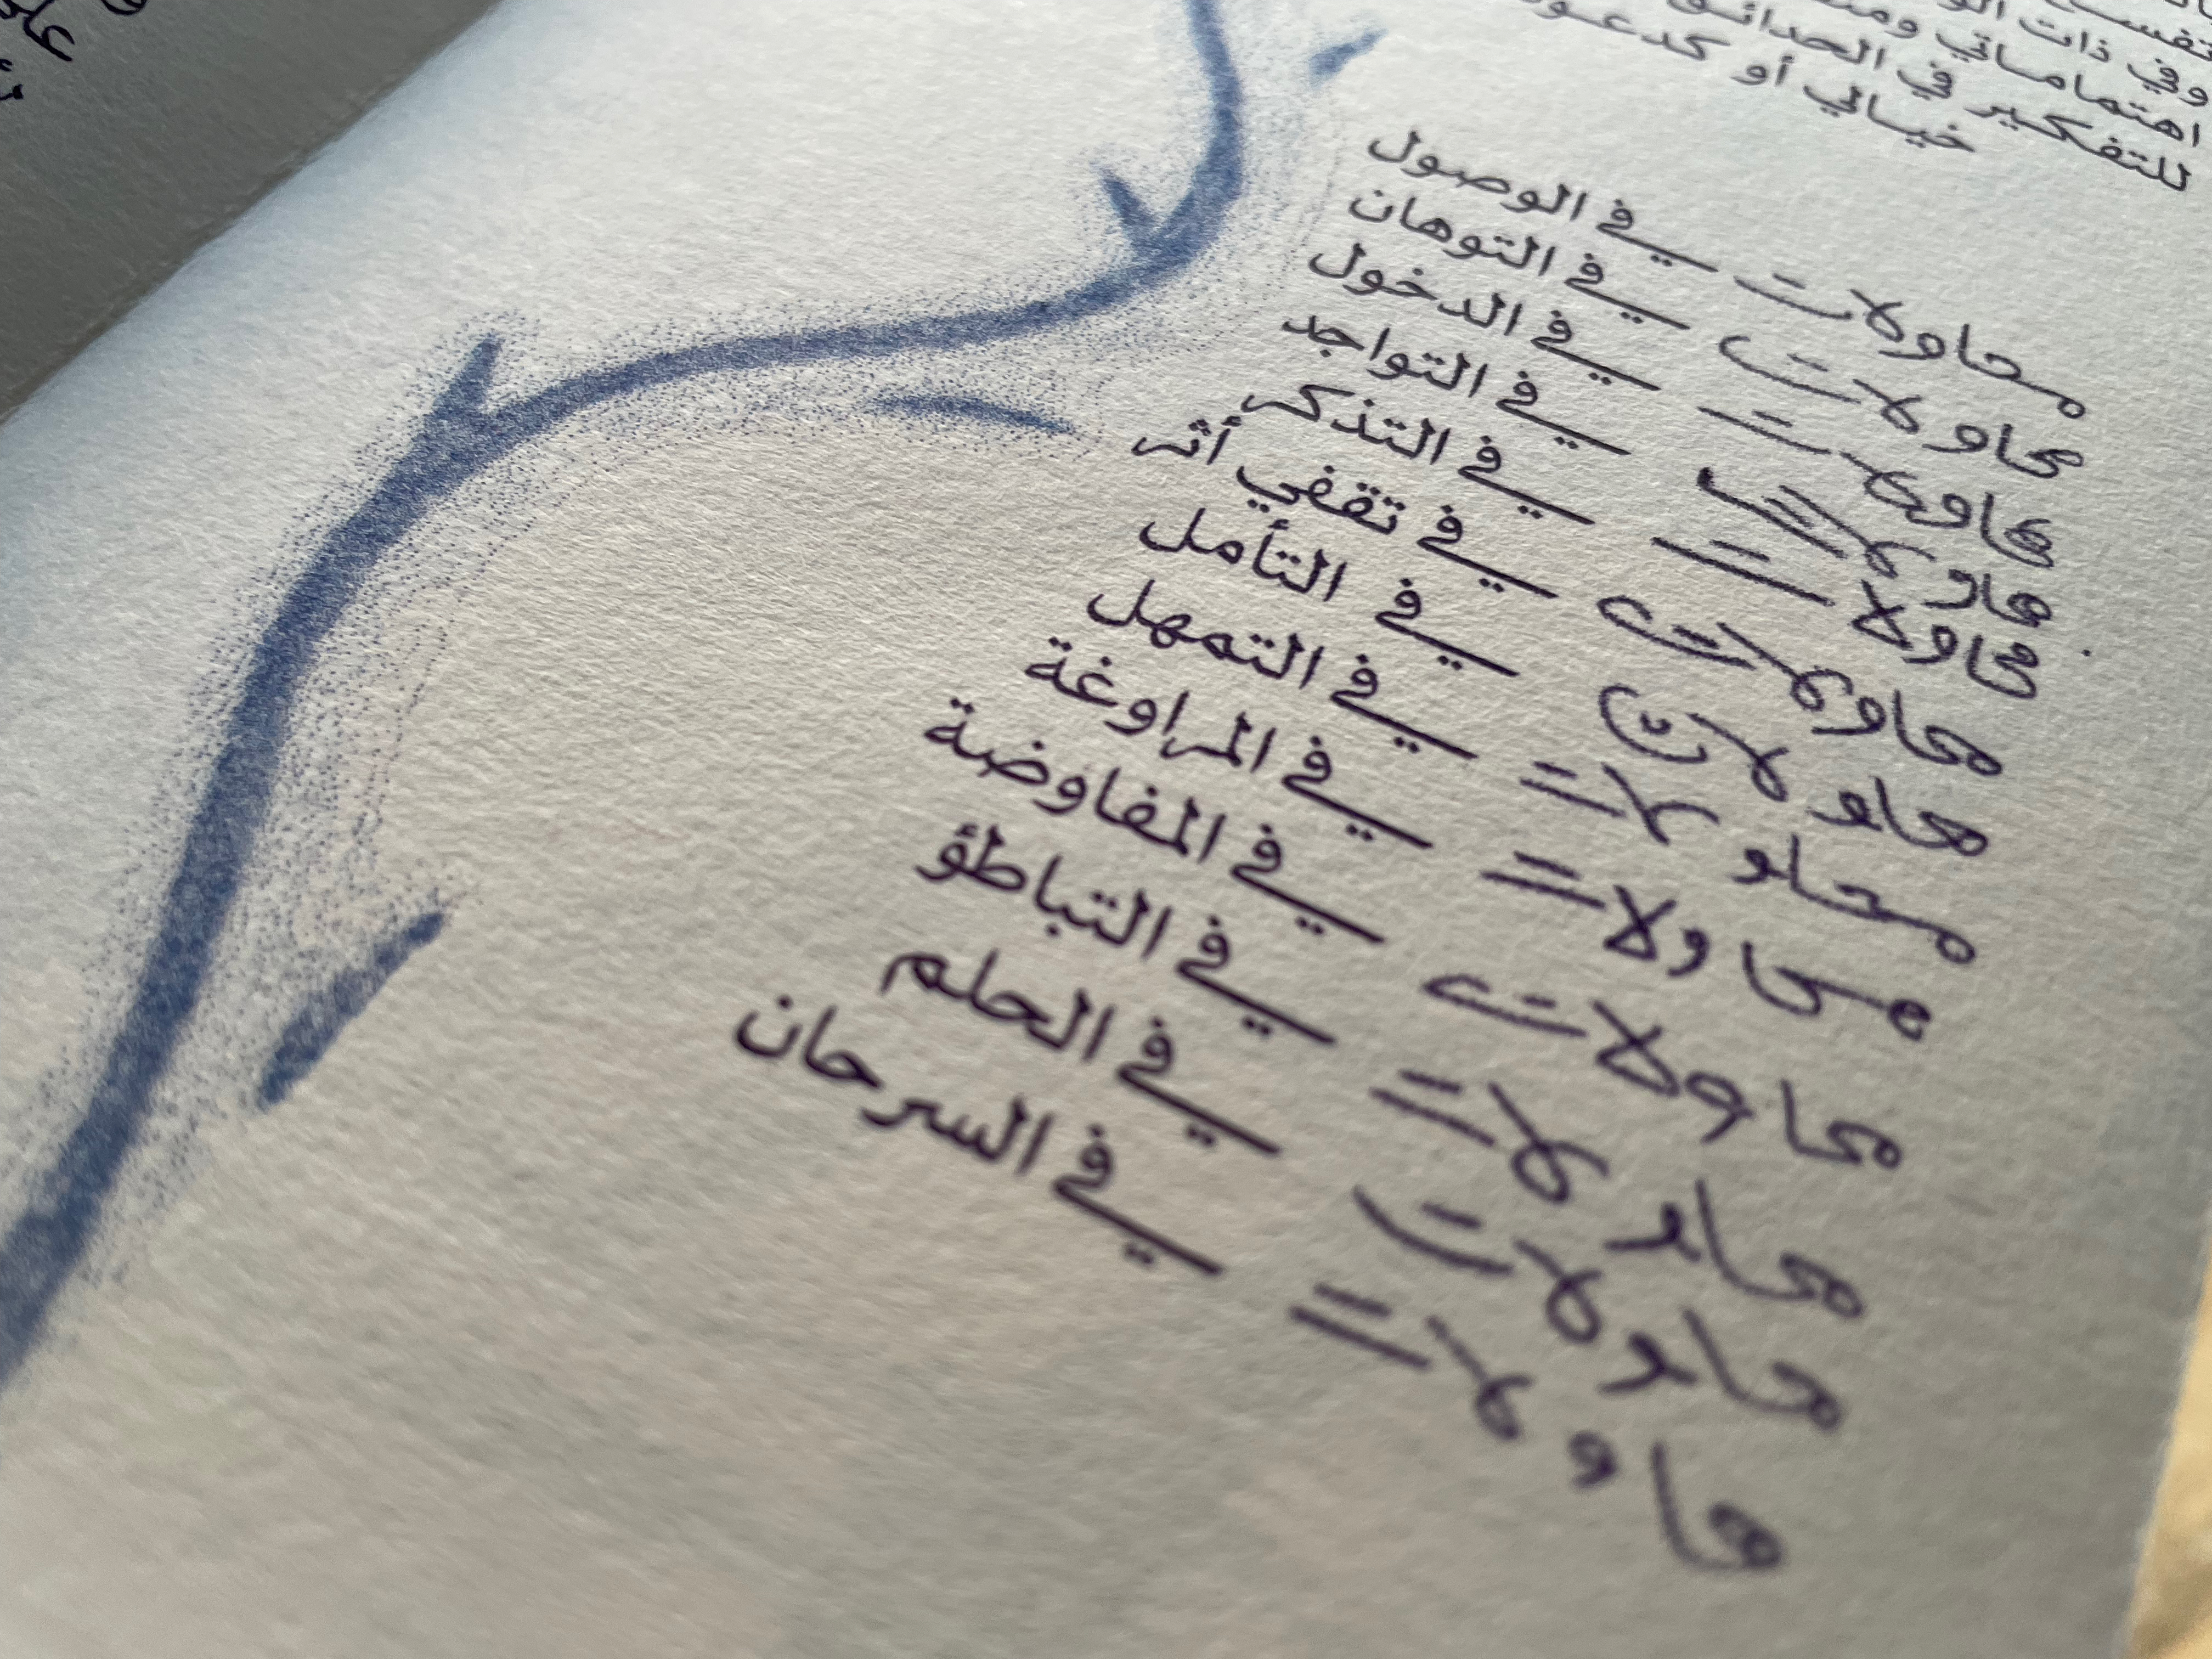 تفسي
وفي ذات
اهتماماتي
للتفكير في الحدائق
خيالي أو كدعو
محاولات في الوصول
محاولات في التوهان
محاولات في الدخول
محاولات في التواجد
محاولات في التذكر
محاولات في تقفي أثر
محاولات في التأمل
محاولات في التمهل
محاولات في المراوغة
محاولات في المفاوضة
محاولات في التباطؤ
محاولات في الحلم
محاولات في السرحان